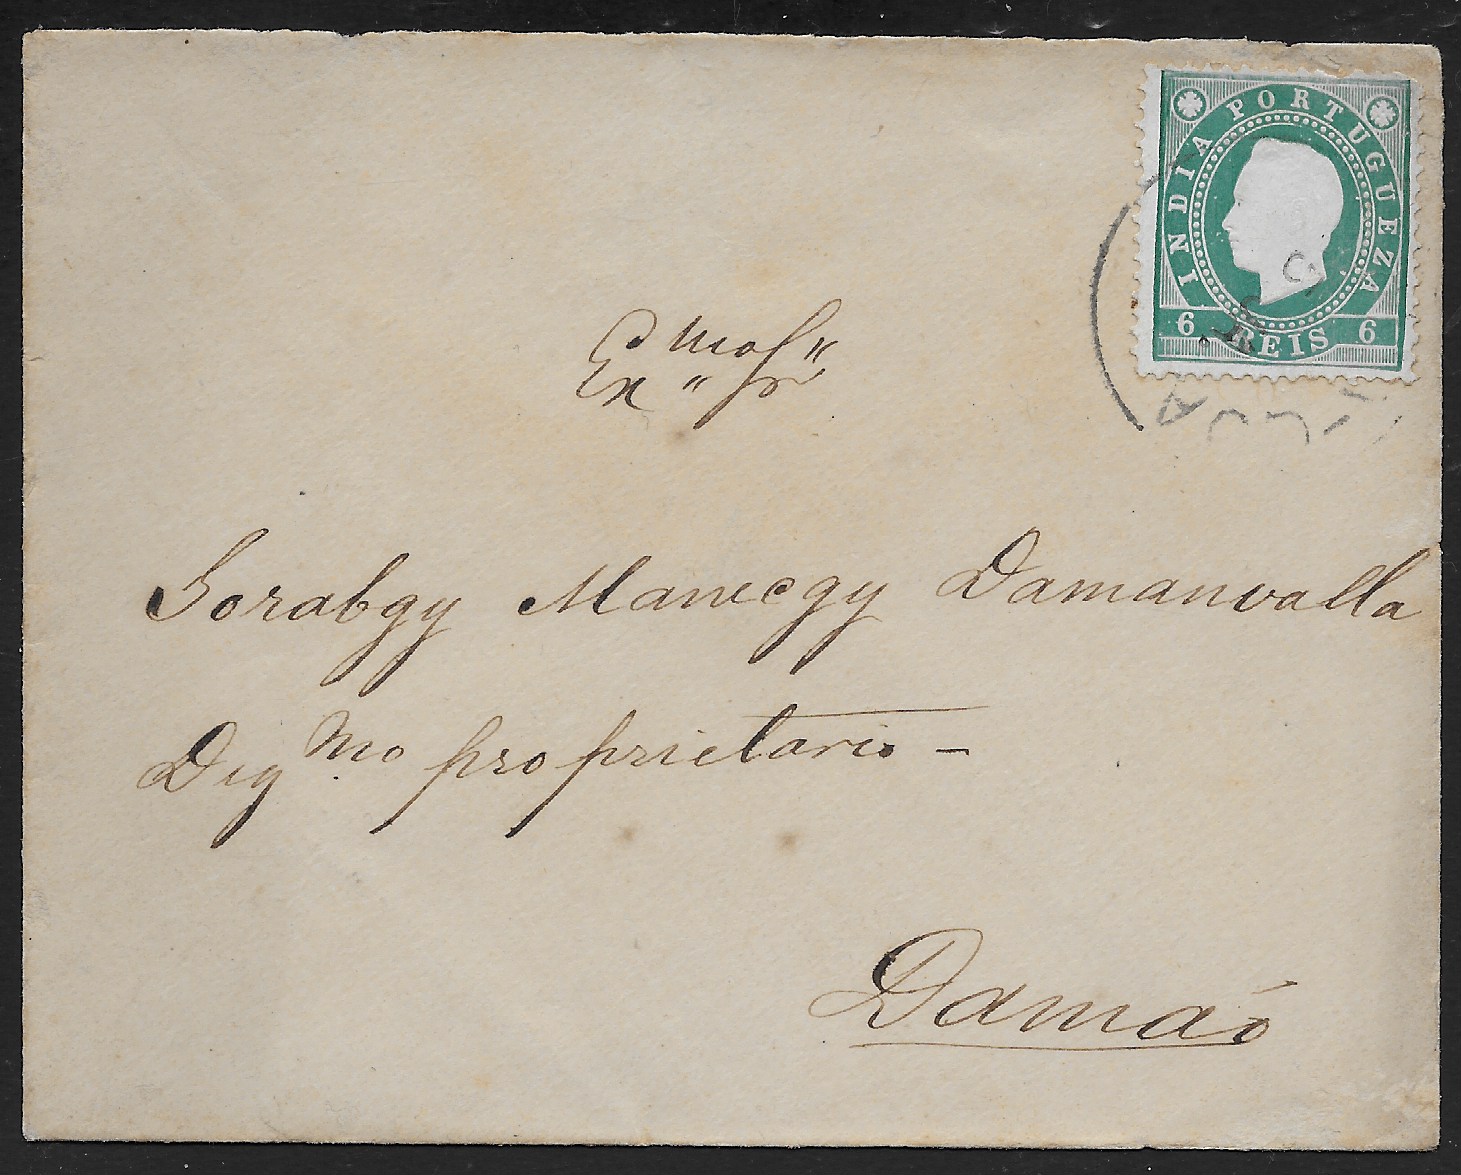 INDIA PORTUGUEZA
6 REIS 6
Exmo Sr
Sorabgy Manecgy Damanvalla
Digmo proprietario -
Damaõ